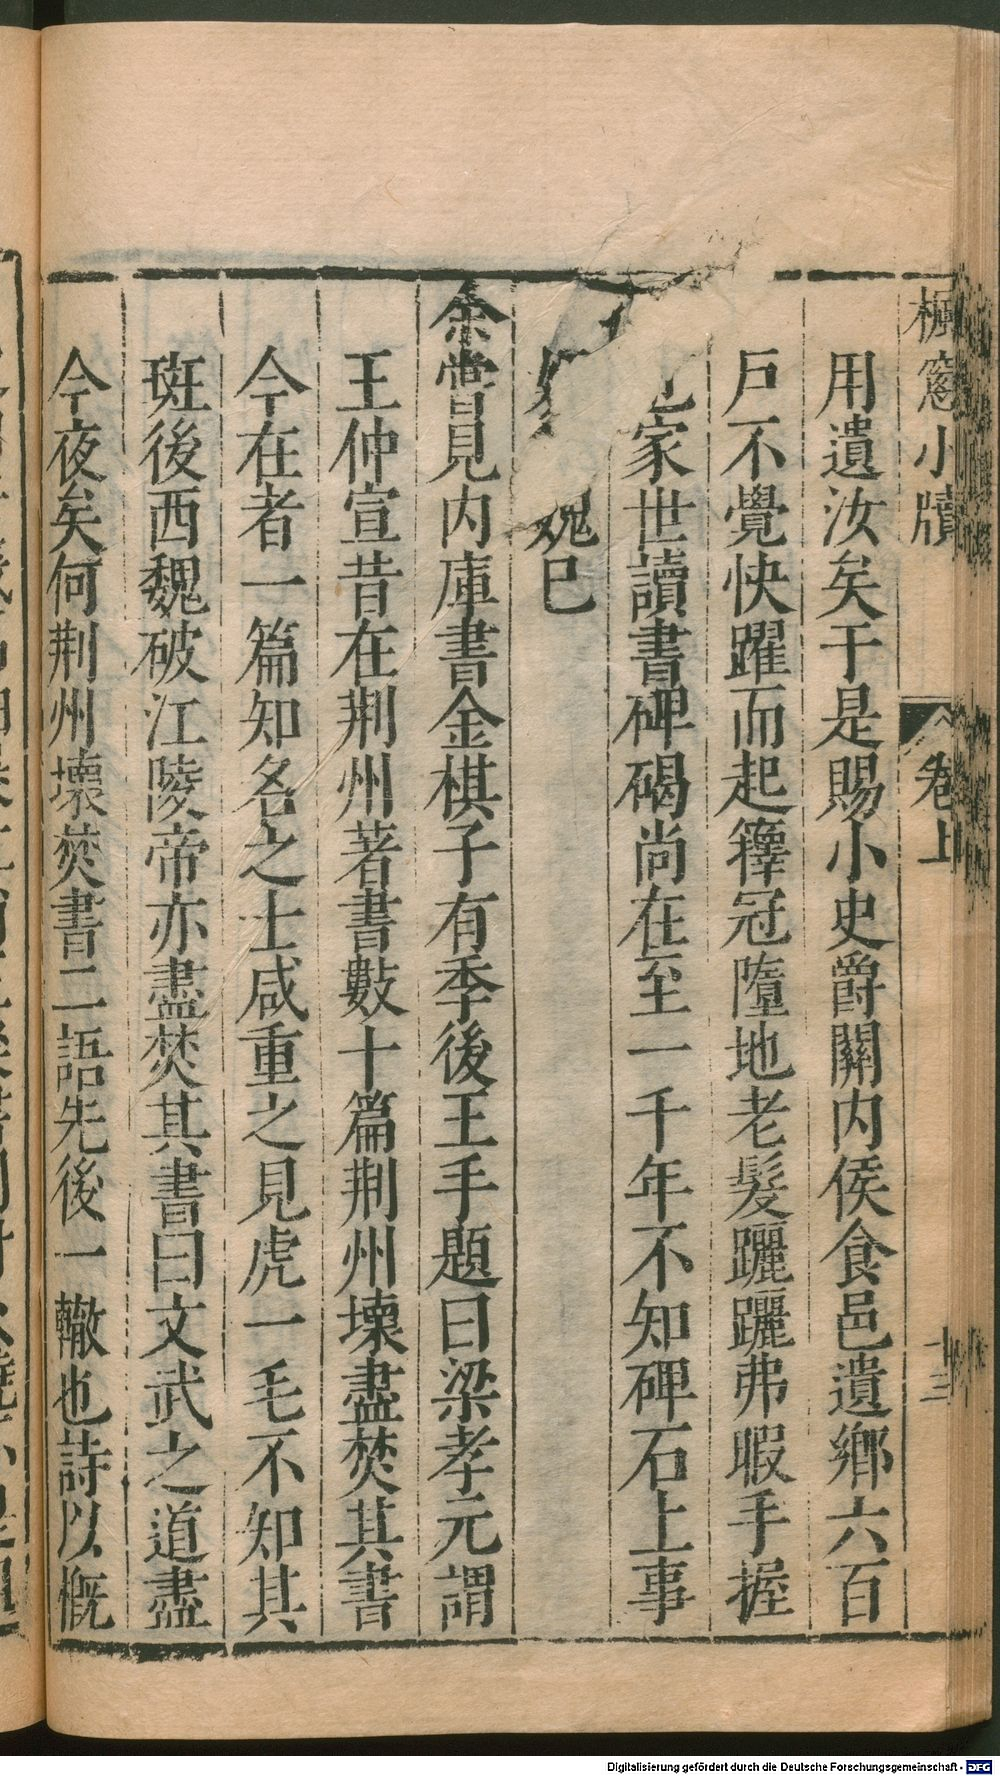 楓窻小牘
卷上
十三
用遺汝矣于是賜小史爵關内侯食邑遺鄉六百
戶不覺快躍而起籜冠墮地老髮躧躧弗暇手握
家世讀書碑碣尚在至一千年不知碑石上事
媿已
余嘗見内庫書金棋子有季後王手題曰梁孝元謂
王仲宣昔在荆州著書數十篇荆州壞盡焚其書
今在者一篇知名之士咸重之見虎一毛不知其
斑後西魏破江陵帝亦盡焚其書曰文武之道盡
今夜矣何荆州壞焚書二語先後一轍也詩以慨
Digitalisierung gefördert durch die Deutsche Forschungsgemeinschaft - DFG